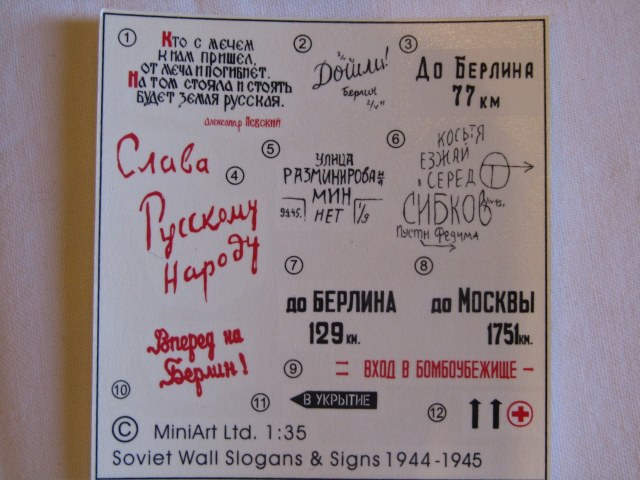 1
Кто с мечем
к нам пришел,
от меча и погибнет.
На том стояла и стоять
будет земля русская.
Александр Невский
2
Дошли!
Берлин
3
До Берлина
77 км
4
Слава
Русскому
Народу
5
УЛИЦА
РАЗМИНИРОВАНА
МИН
НЕТ
6
КОСЬТЯ
ЕЗЖАЙ
СЕРЕД
СИБКОВ
Пусти Федима
7
до БЕРЛИНА
129 км.
8
до МОСКВЫ
1751 км.
9
= ВХОД В БОМБОУБЕЖИЩЕ –
10
Вперед на
Берлин!
11
В УКРЫТИЕ
12
© MiniArt Ltd. 1:35
Soviet Wall Slogans & Signs 1944-1945